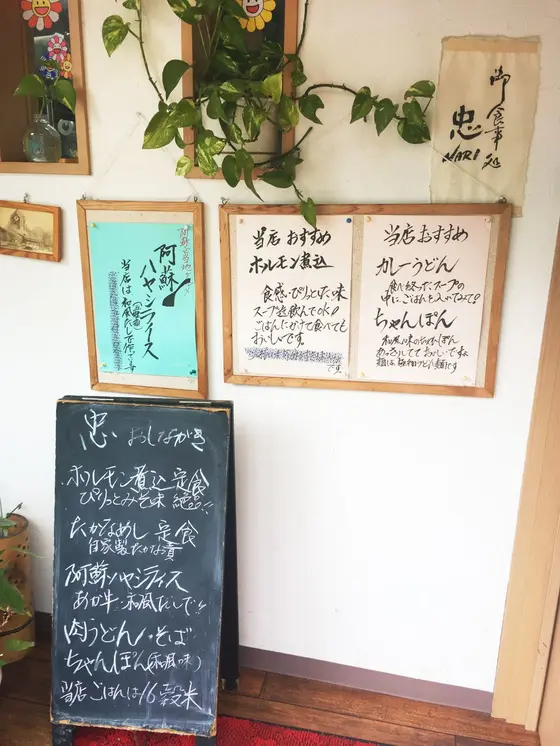 御食事処
忠
NARI
阿蘇ご当地グルメ
阿蘇
ハヤシライス
当店は和風だし仕立てです
当店 おすすめ
ホルモン煮込
食感・ぴりっとした味
スープ迄飲んでOK!
ごはんにかけて食べても
おいしいです。
です。
当店おすすめ
カレーうどん
食べ終ったスープの
中にごはんを入れてみて!
ちゃんぽん
和風味のちゃんぽん
あっさりしてておいしいですよ
麺は
うどん麺です
忠 おしながき
ホルモン煮込 定食
ぴりっとみそ味 絶品!!
たかなめし 定食
自家製たかな漬
阿蘇ハヤシライス
あか牛・和風だしで!!
肉うどん・そば
ちゃんぽん(和風味)
当店ごはんは16穀米